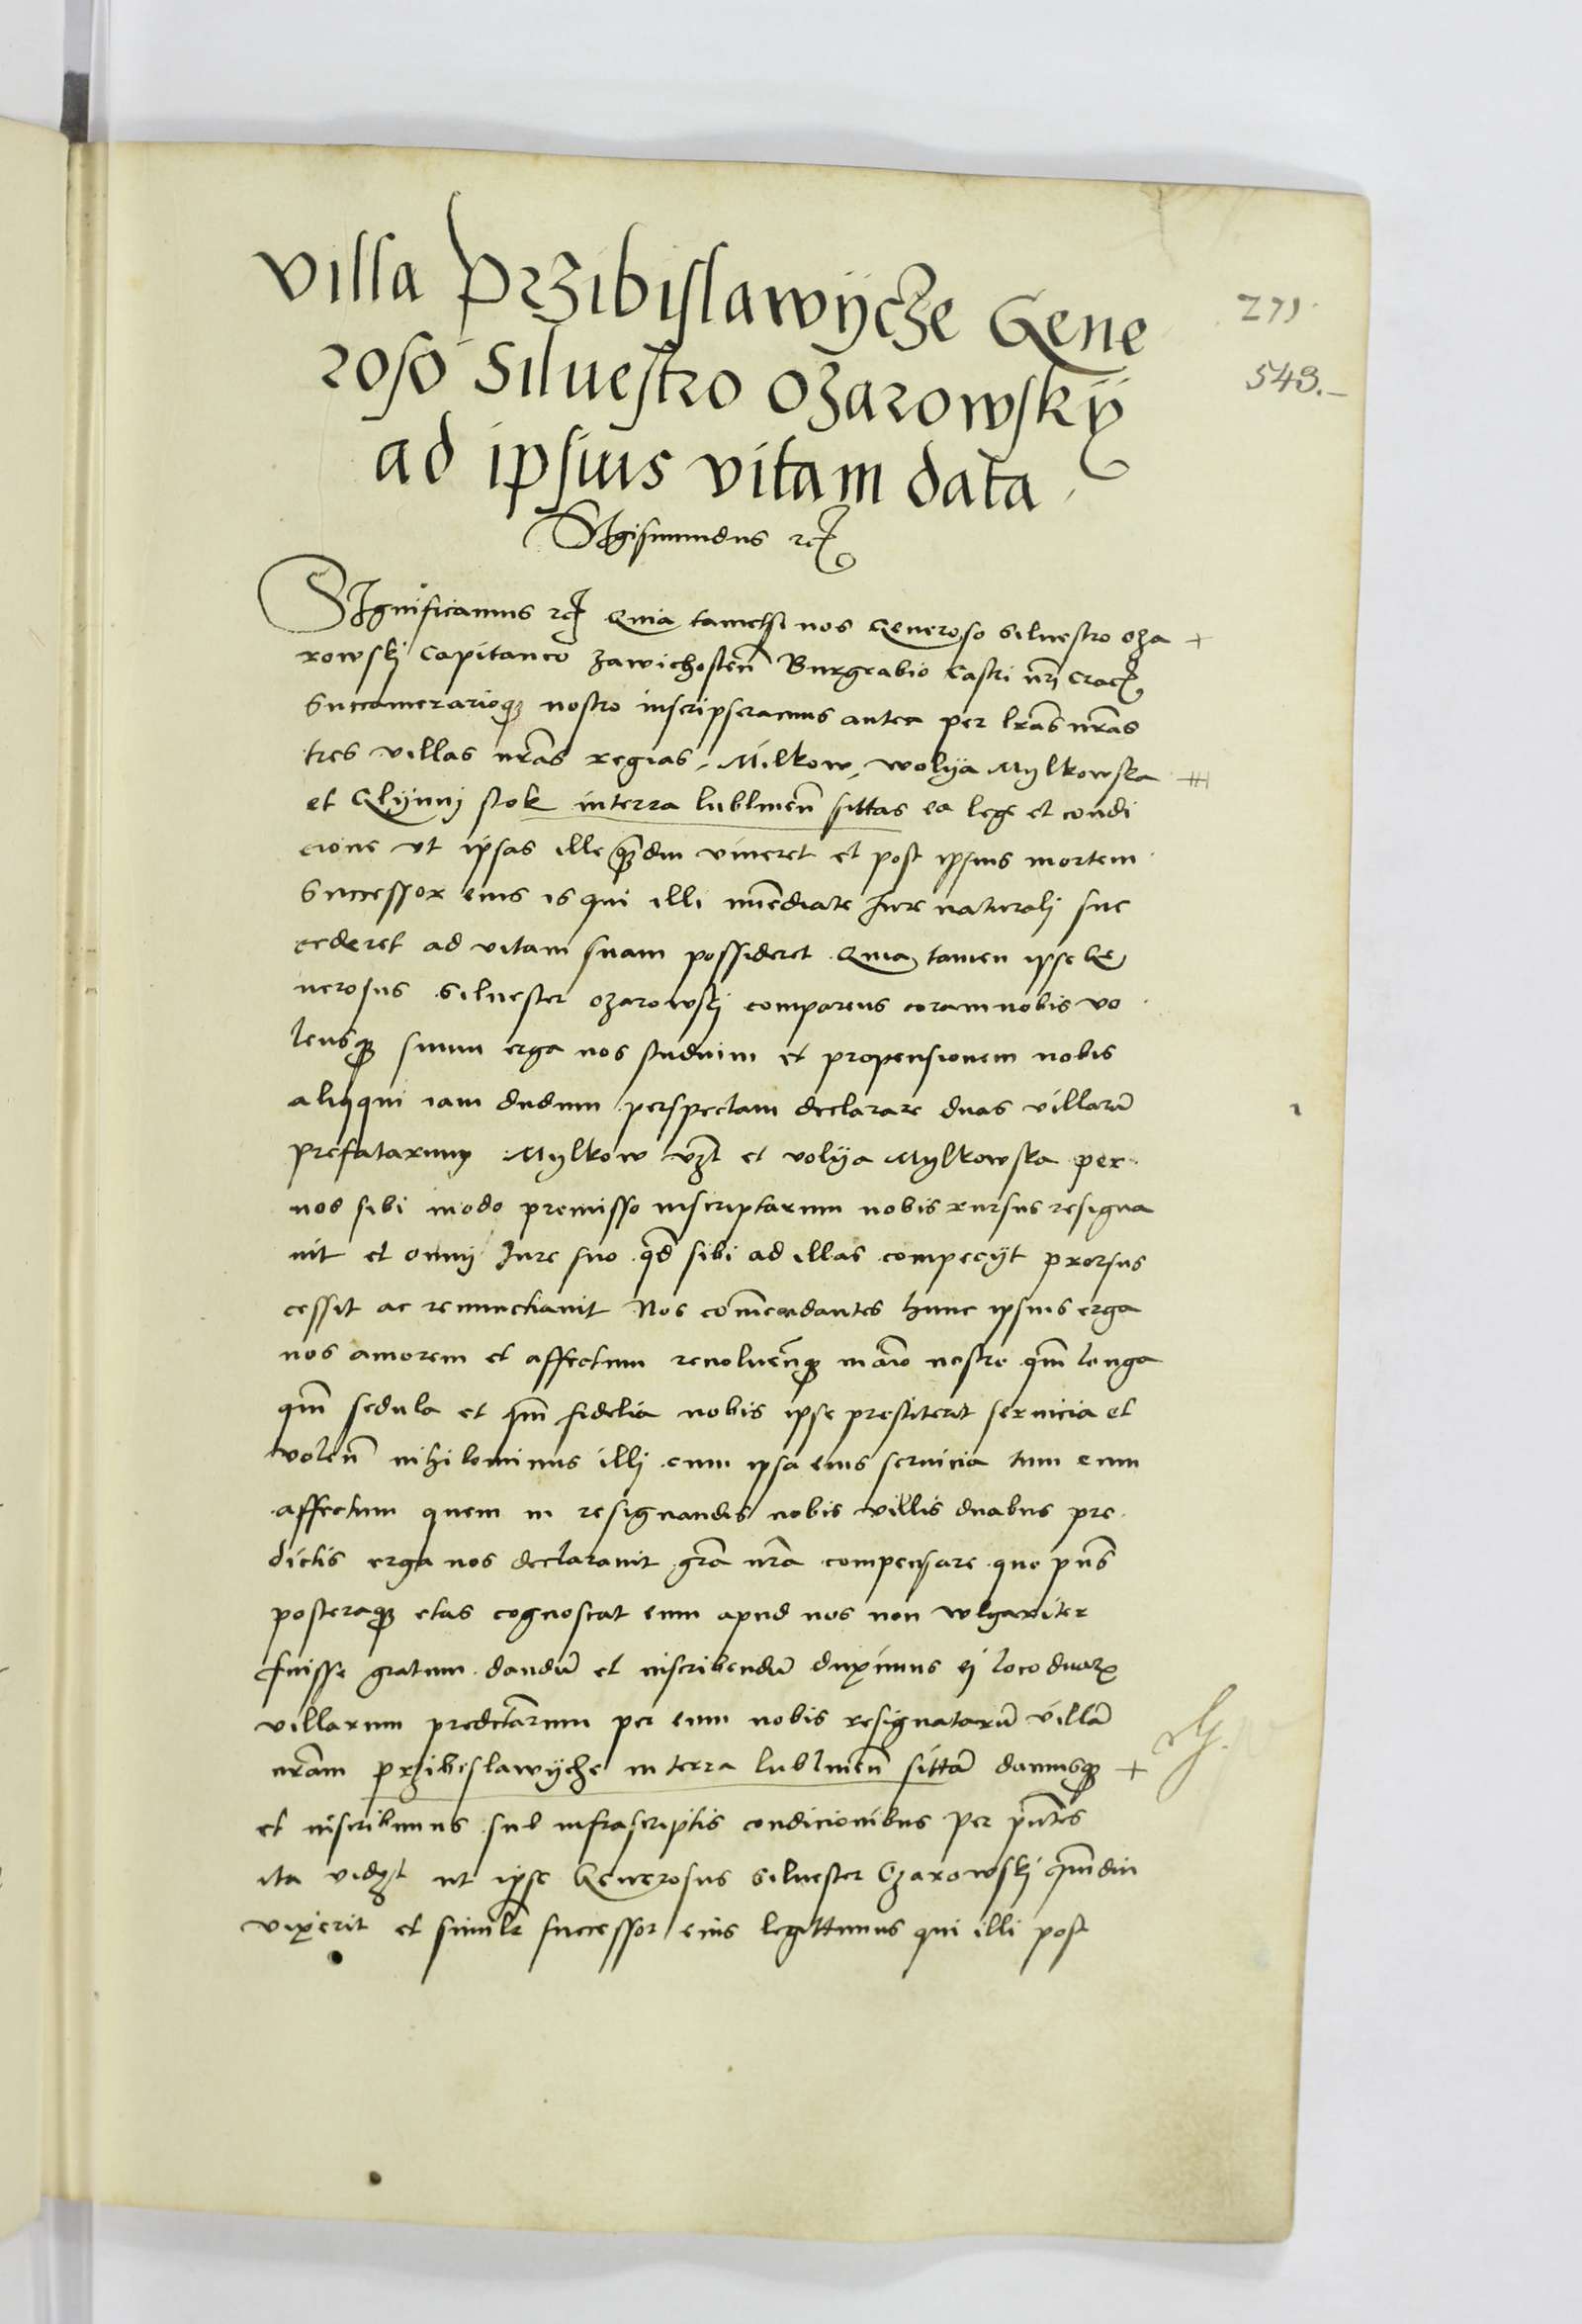 Villa Przibislawÿcze Gene
271
roso Silvestro Ozarowskÿ
543.–
ad ipsius vitam data
Sigismundus rex
Significamus rex Quia tametsi nos Generoso Silvestro Oza +
rowskj Capitaneo Zawichosten̄ Burgrabio Castri nr̄i Crac
Succamerarioq₃ nostro inscripseramus antea per lr̄as nr̄as
tres villas nr̄as regias, Milkow, wolÿa Mylkowska
et Glÿnnÿ stok in terra lublinen̄ sittas ea lege et condi
cione ut ipsas ille qȝdiu viveret et post ipsius mortem
Successor eius is qui illi imēdiate Jure naturalj suc
cederet ad vitam suam possideret Quia tamen ipse Ge
nerosus Silvester ozarowskj comparens coram nobis vo
lensq₃ suum erga nos studium et propensionem nobis
alioqui iam dudum perspectam declarare duas villarū
prefatarum Mylkow vȝt et volÿa Mylkowska per
nos sibi modo premisso inscriptarum nobis rursus resigna
vit et omnj Jure suo qd̄ sibi ad illas compecÿt prorsus
cessit ac renunctiavit Nos com̄endantes hunc ipsius erga
nos amorem et affectum revoluen̄q₃ in aīo nostro qm̄ longa
qm̄ sedula et qm̄ fidelia nobis ipse prestiterit servicia et
volen̄ nihilominus illj cum ipsa eius servicia tum eum
affectum quem in resignandis nobis villis duabus pre
dictis erga nos declaravit gr̄a nr̄a compensare quo pn̄s
posteraq₃ etas cognoscat eum apud nos non wlgariter
fuisse gratum dandū et inscribendū duximus ej loco duarꝝ
villarum predictarum per eum nobis resignatarū villā
nr̄am przibislawÿcze in terra lublinen̄ sittā damusq₃ +
et inscribimus sub infrascriptis condicionibus per pn̄tes
ita vidȝt ut ipse Generosus Silvester Ozarowskj qm̄diu
vixerit et similr̄ successor eius legittimus qui illi post